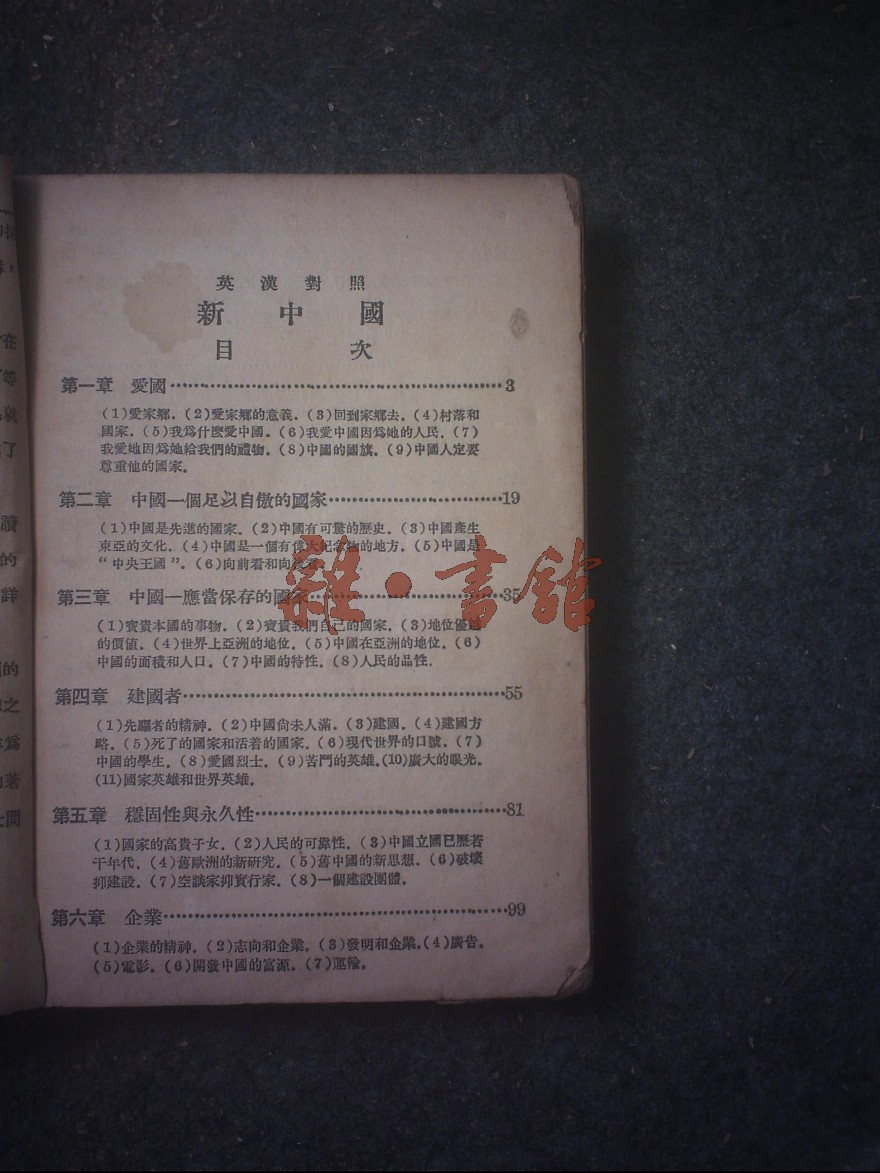 英漢對照
新中國
目次
第一章 愛國……3
(1)愛家鄉. (2)愛家鄉的意義. (3)回到家鄉去. (4)村落和
國家. (5)我爲什麼愛中國. (6)我愛中國因爲她的人民. (7)
我愛她因爲她給我們的禮物. (8)中國的國旗. (9)中國人定要
尊重他的國家.
第二章 中國一個足以自傲的國家……19
(1)中國是先進的國家. (2)中國有可驚的歷史. (3)中國產生
東亞的文化. (4)中國是一個有偉大紀念物的地方. (5)中國是
“中央王國”. (6)向前看和向後看.
第三章 中國—應當保存的國家……35
(1)寶貴本國的事物. (2)寶貴我們自己的國家. (3)地位優越
的價值. (4)世界上亞洲的地位. (5)中國在亞洲的地位. (6)
中國的面積和人口. (7)中國的特性. (8)人民的品性.
第四章 建國者……55
(1)先驅者的精神. (2)中國尙未人滿. (3)建國. (4)建國方
略. (5)死了的國家和活着的國家. (6)現代世界的口號. (7)
中國的學生. (8)愛國烈士. (9)苦鬥的英雄. (10)廣大的眼光.
(11)國家英雄和世界英雄.
第五章 穩固性與永久性……81
(1)國家的高貴子女. (2)人民的可靠性. (3)中國立國已歷若
干年代. (4)舊歐洲的新研究. (5)舊中國的新思想. (6)破壞
抑建設. (7)空談家抑實行家. (8)一個建設團體.
第六章 企業……99
(1)企業的精神. (2)志向和企業. (3)發明和企業. (4)廣告.
(5)電影. (6)開發中國的富源. (7)運輸.
雜·書館
在
等
就
了
讀
的
詳
的
之
爲
著
間